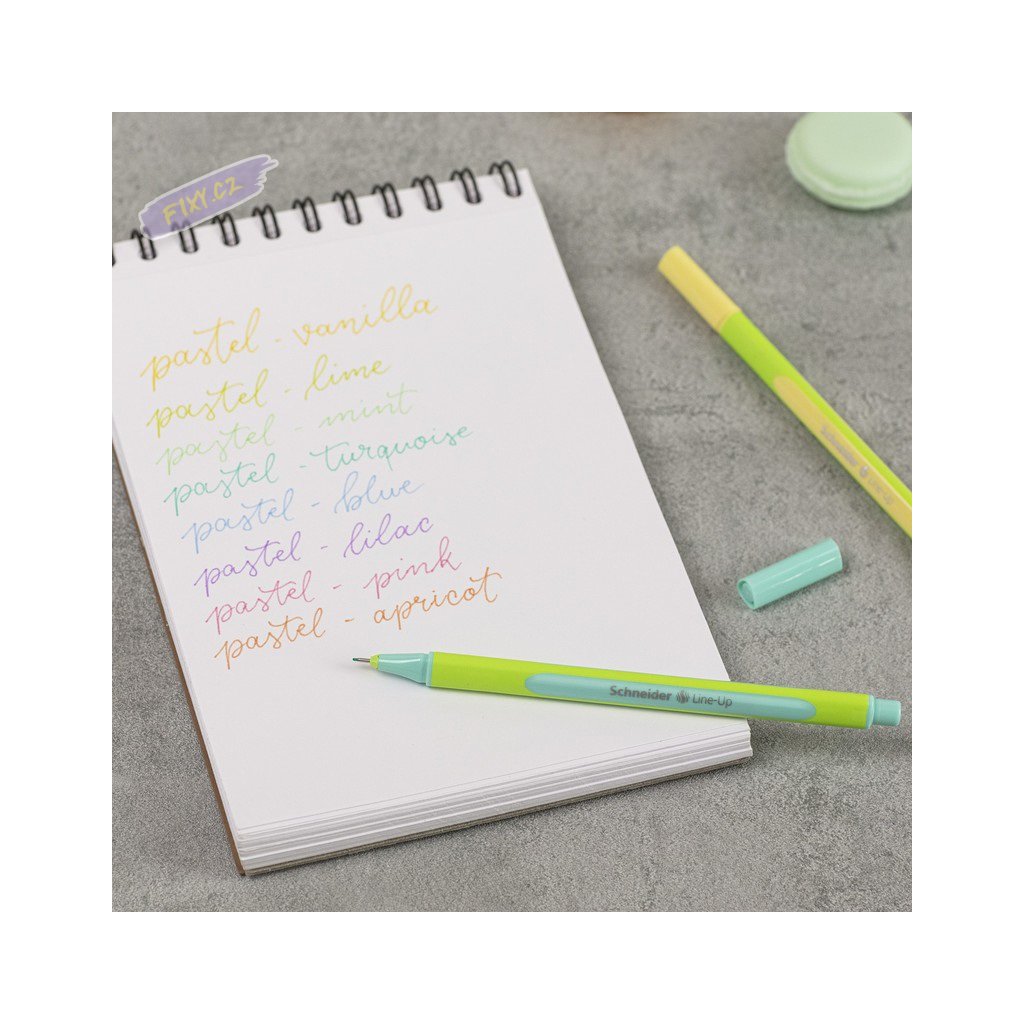 FIXY.CZ
pastel - vanilla
pastel - lime
pastel - mint
pastel - turquoise
pastel - blue
pastel - lilac
pastel - pink
pastel - apricot
Schneider Line-Up
Schneider Line-Up